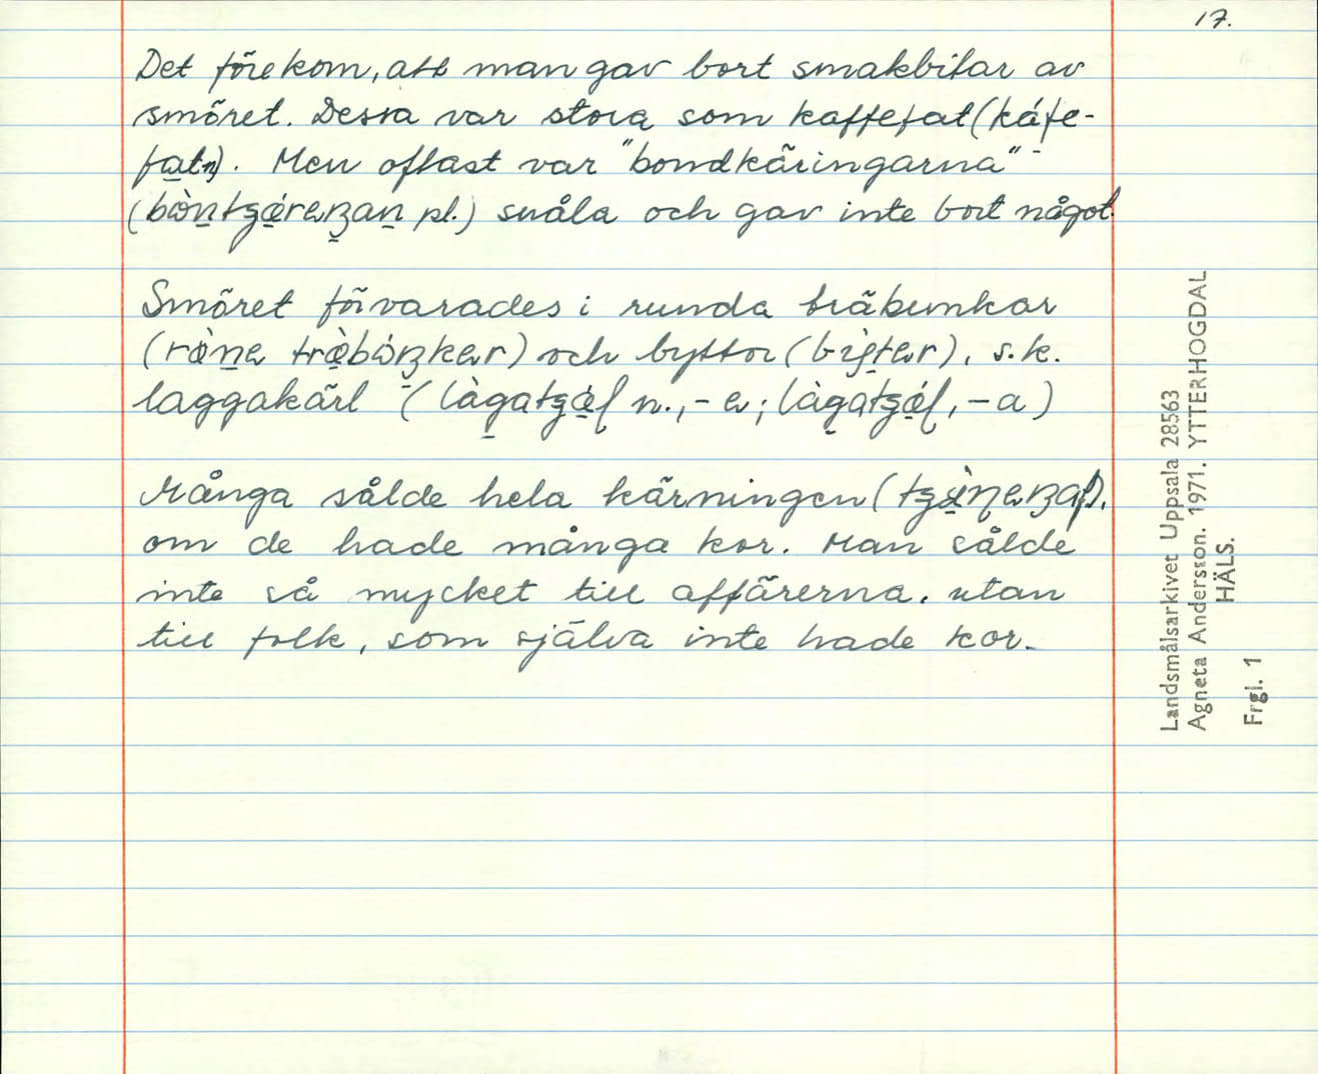 17.
Det förekom, att man gav bort smakbitar av
smöret. Dessa var stora som kaffefat (káfe-
fatn). Men oftast var "bondkäringarna"
pl.) snåla och gav inte bort något.
Smöret förvarades i runda träbunkar
och byttor s.k.
laggakärl
Många sålde hela kärningen
om de hade många kor. Man sålde
inte så mycket till affärerna, utan
till folk, som själva inte hade kor.
Landsmålsarkivet Uppsala 28563
Agneta Andersson. 1971. YTTERHOGDAL
HÄLS.
Frgl. 1